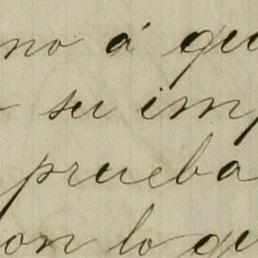 no á qu
su imp
prueba
on lo qu